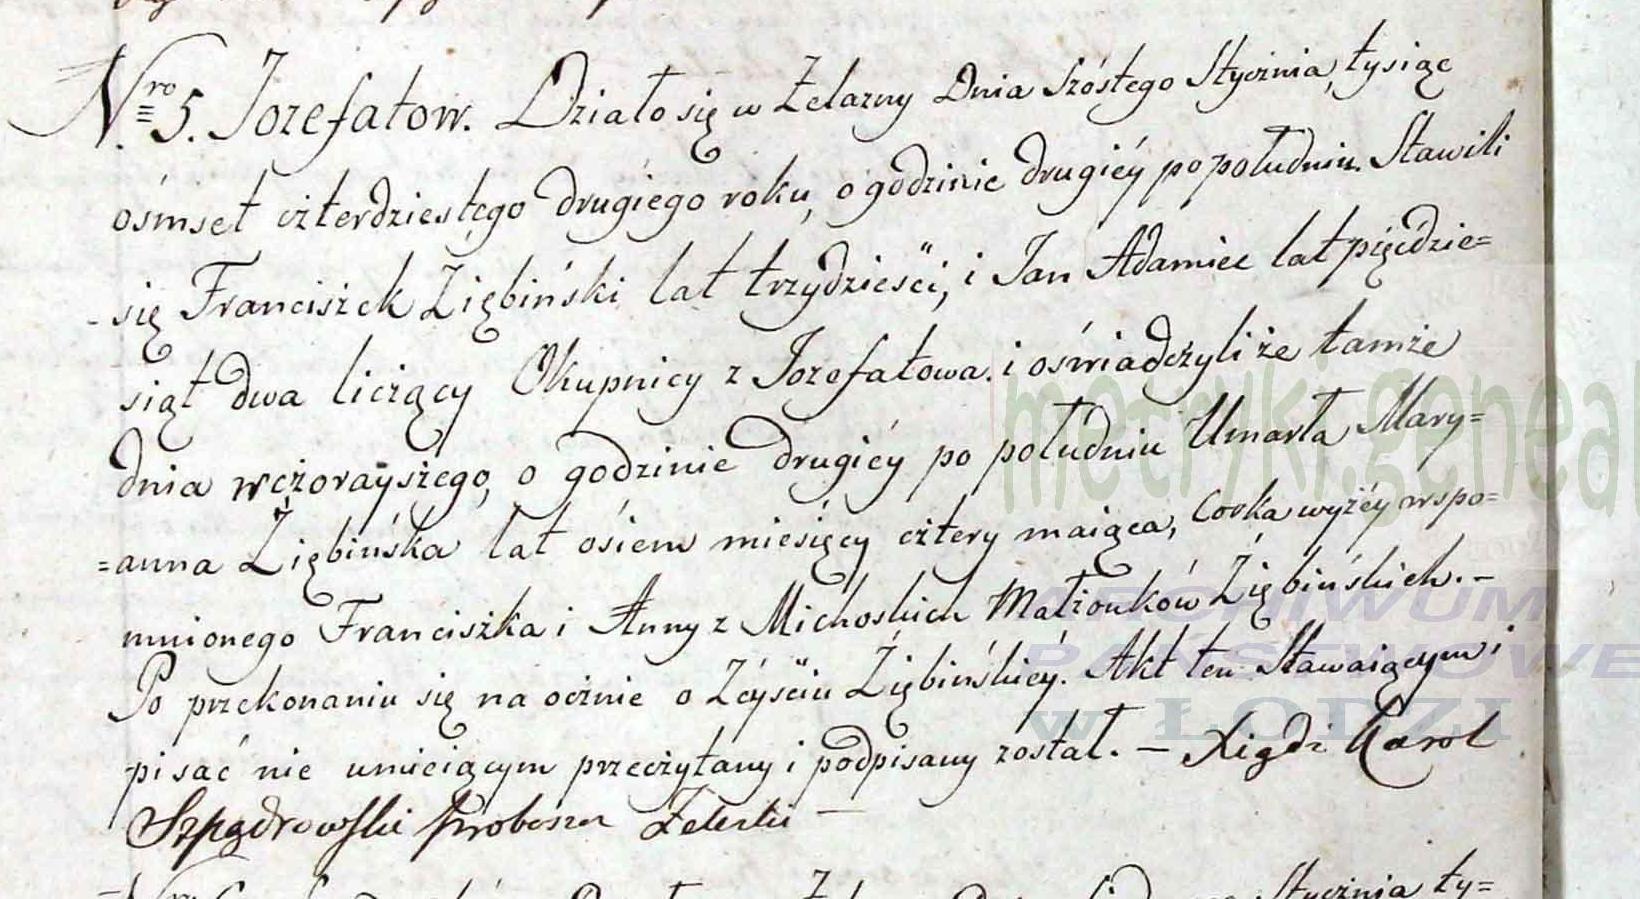 Nro 5. Jozefatow. Działo się w Żelazny Dnia Szóstego Stycznia, tysiąc
ośmset czterdziestego drugiego roku, o godzinie drugiéy po południu. Stawili
się Franciszek Ziębiński lat trzydzieści, i Jan Adamiec lat pięćdzie=
siąt dwa liczący Okupnicy z Jozefatowa. i oświadczyli że tamże
dnia wczorayszego, o godzinie drugiéy po południu Umarła Mary=
=anna Ziębińska lat ośiem miesięcy cztery maiąca, Corka wyżéy wspo=
mnionego Franciszka i Anny z Michoskich Małżonków Ziębińskich. –
Po przekonaniu się na ocznie o Zéyściu Ziębińskiéy. Akt ten Stawaiącym i
pisać nie umieiącym przeczytany i podpisany został. – Xiądz Karol
Szpądrowski Proboszcz
Stycznia ty=
metryki.geneal
ARCHIWUM
PAŃSTWOWE
W ŁODZI